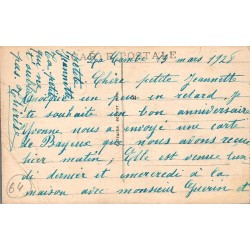 CARTE POSTALE
La Combe 19 mars 1928
Chère petite Jeannette
Quoique un peu en retard. Je
te souhaite un bon anniversaire
Yvonne nous a envoyé une carte
de Bayeux que nous avons reçu
hier matin; Elle est venue lun
di dernier et mercredi à la
maison avec monsieur Guérin et
petite
Jeannette
La petite
que nous
pas.
64